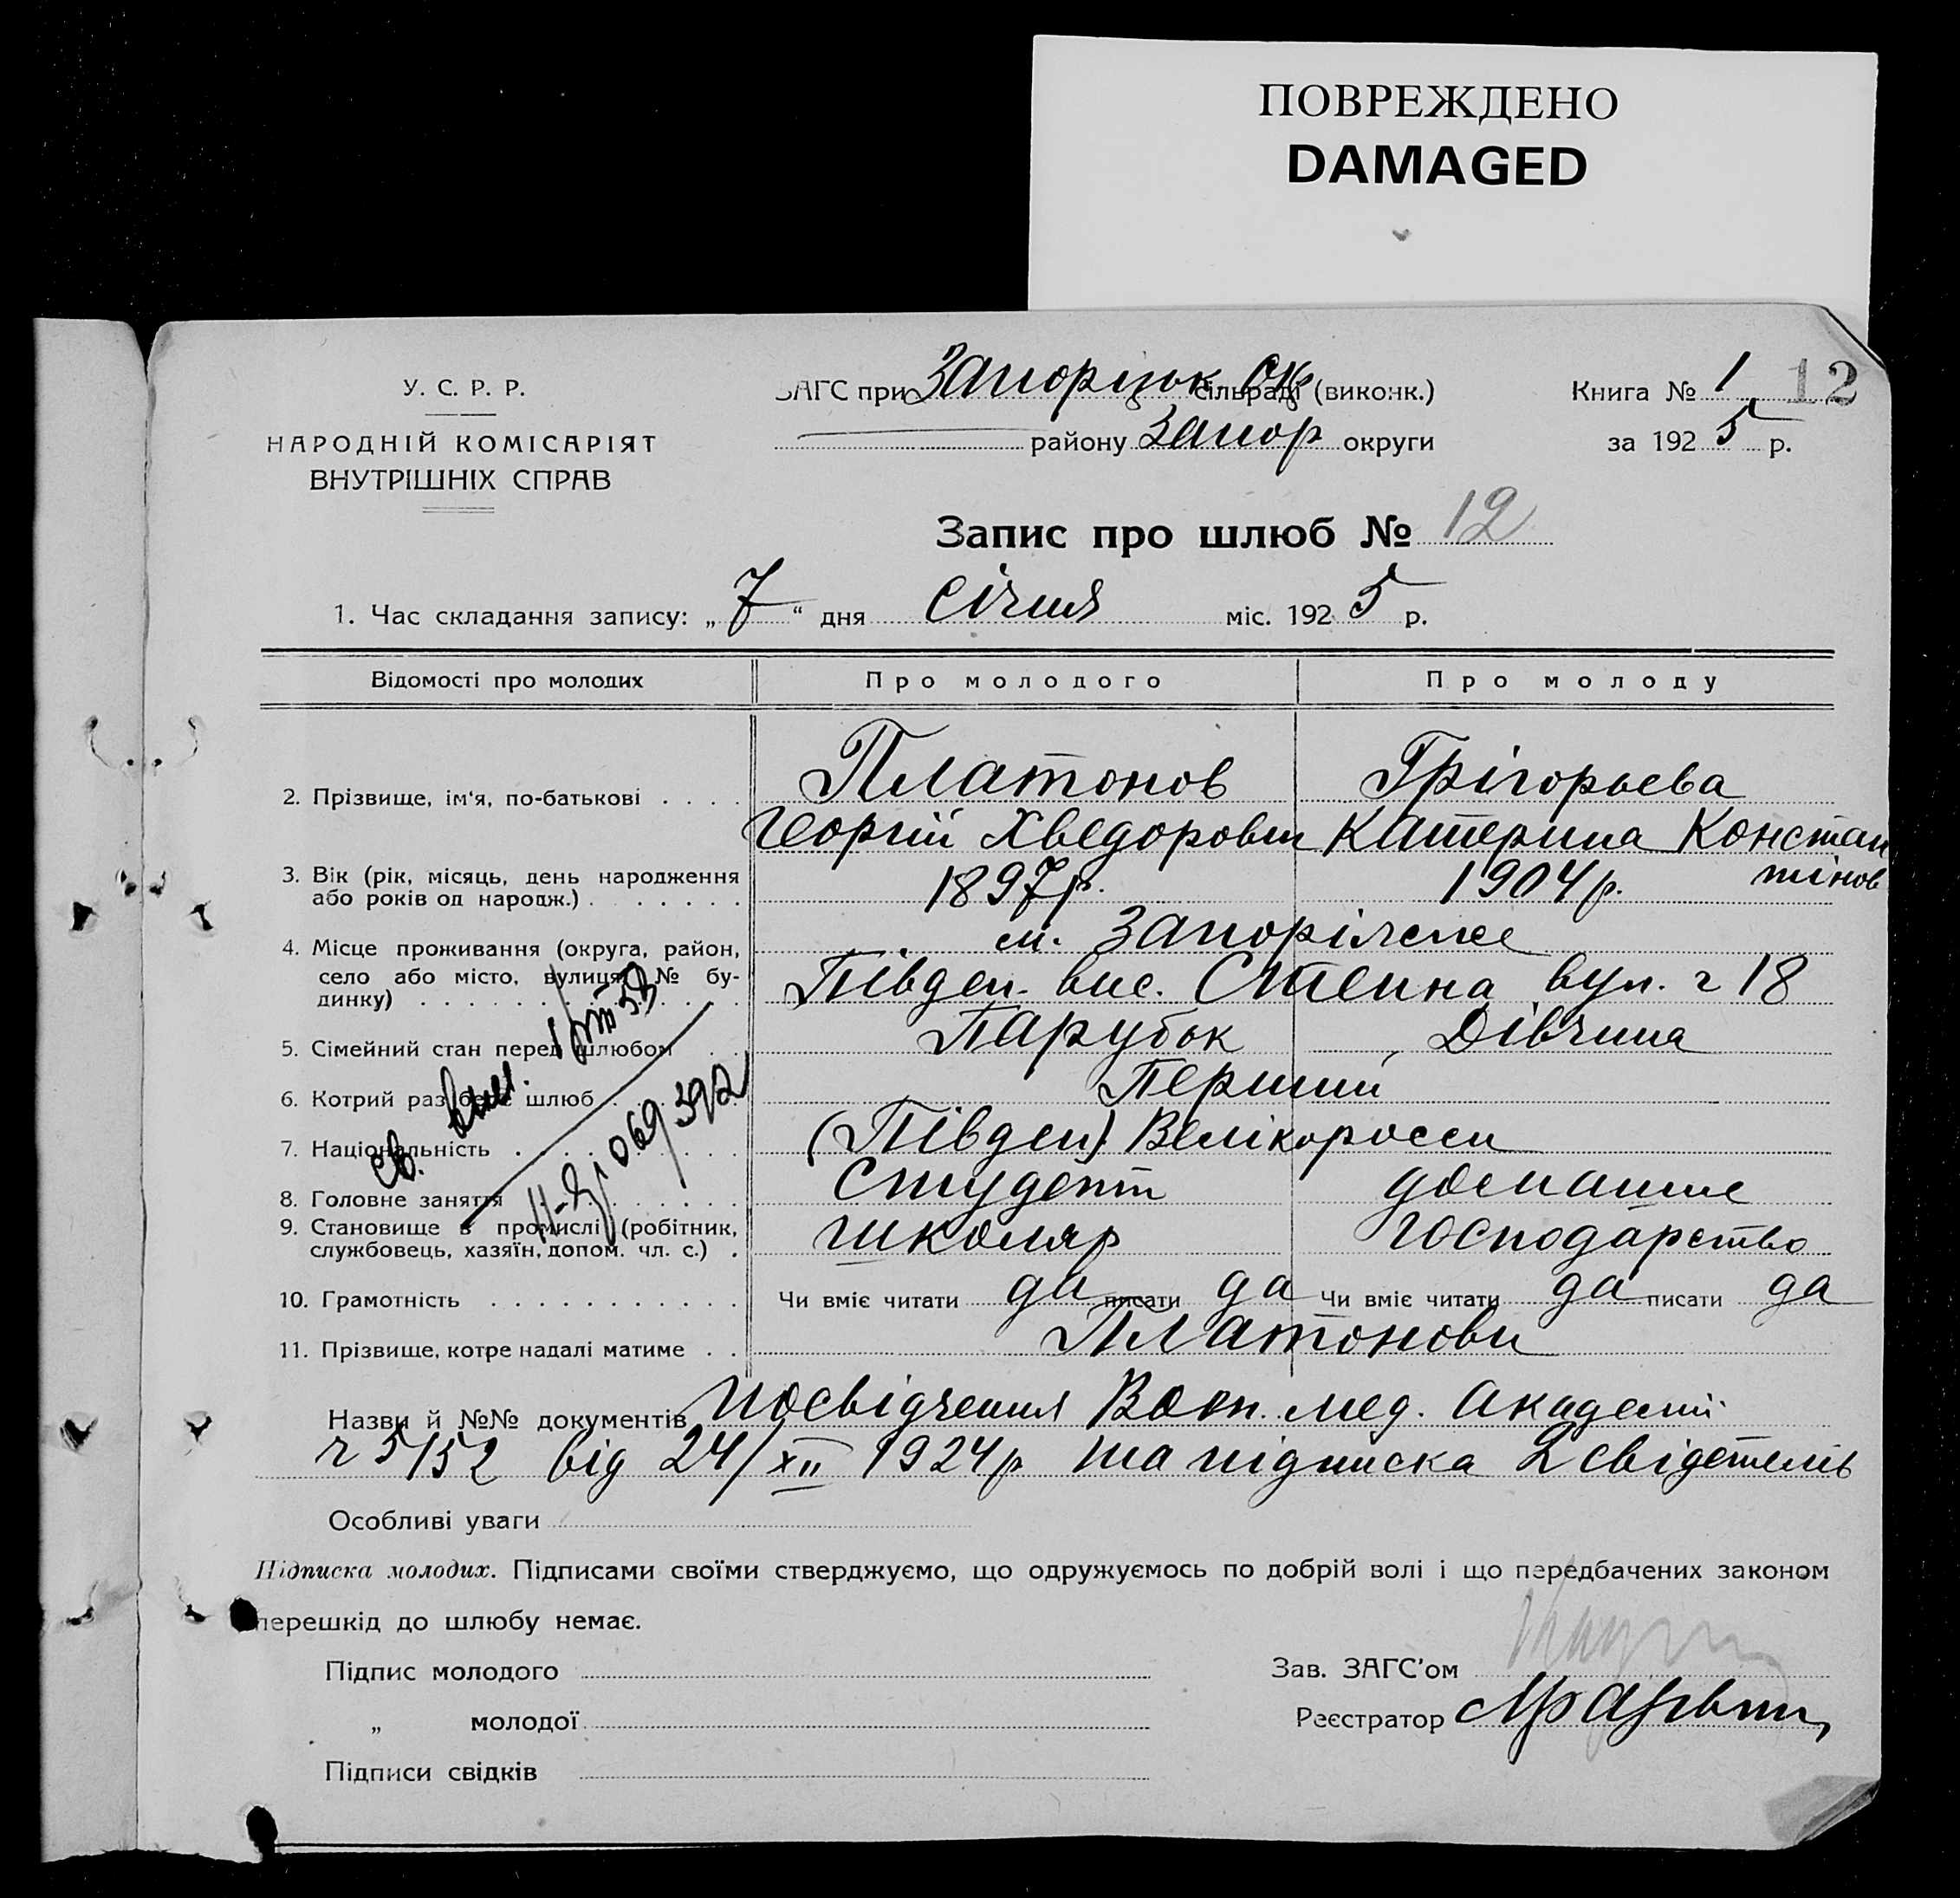 ПОВРЕЖДЕНО
DAMAGED
У. С. Р. Р.
НАРОДНІЙ КОМІСАРІЯТ
ВНУТРІШНІХ СПРАВ
ЗАГС при Запорізьк. Окр сільраді (виконк.)
району Запор округи
Книга № 1 12
за 1925 р.
Запис про шлюб № 12
1. Час складання запису: „7“ дня січня міс. 1925 р.
Відомості про молодих Про молодого Про молоду
2. Прізвище, ім'я, по-батькові . . . . Платонов Грігорьева
Георгій Хведорович Катерина Констан
тінов
3. Вік (рік, місяць, день народження
або років од народж.) . . . . . . . 1897р. 1904р.
4. Місце проживання (округа, район, м. Запоріжже
село або місто, вулиця, № бу-
динку) Півден. вис. Степна вул. ч 18
5. Сімейний стан перед шлюбом . . Парубок Дівчина
6. Котрий раз бере шлюб Перший
7. Національність (Півден) Велікоросси
8. Головне заняття Студент домашнє
9. Становище в промислі (робітник,
службовець, хазяїн, допом. чл. с.) . школяр господарство
св. вид.
11-ЯР 069392
10. Грамотність . . . . . . . . . . . Чи вміє читати да писати да Чи вміє читати да писати да
11. Прізвище, котре надалі матиме . . Платонови
Назви й №№ документів Посвідчення Воєн. мед. Академії
ч 5152 від 24/XII 1924р та підписка 2 свідетелів
Особливі уваги
Підписка молодих. Підписами своїми стверджуємо, що одружуємось по добрій волі і що передбачених законом
перешкід до шлюбу немає.
Підпис молодого
„ молодої
Підписи свідків
Зав. ЗАГС'ом
Реєстратор